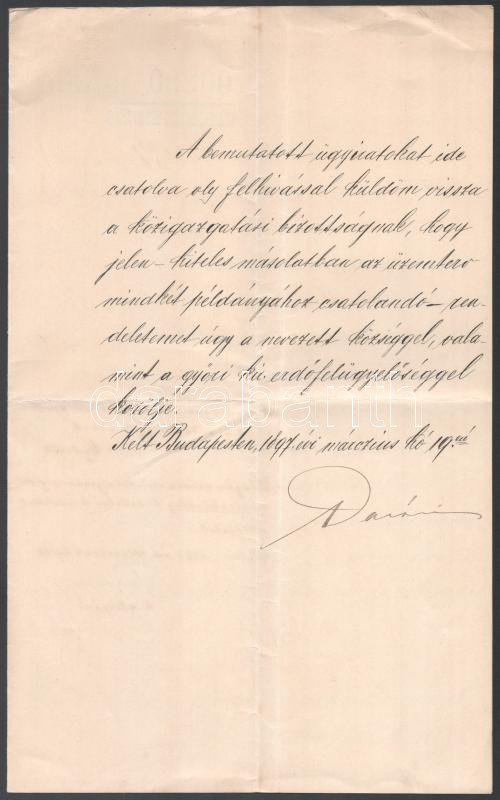 A bemutatott ügyiratokat ide
csatolva oly felhivással küldöm vissza
a közigazgatási bizottságnak, hogy
jelen – hiteles másolatban az üzemterv
mindkét példányához csatolandó – ren-
deletemet úgy a nevezett községgel, vala-
mint a győri kir. erdőfelügyelőséggel
közölje.
Kelt Budapesten, 1897. évi márczius hó 19.én
Darányi
darabanth